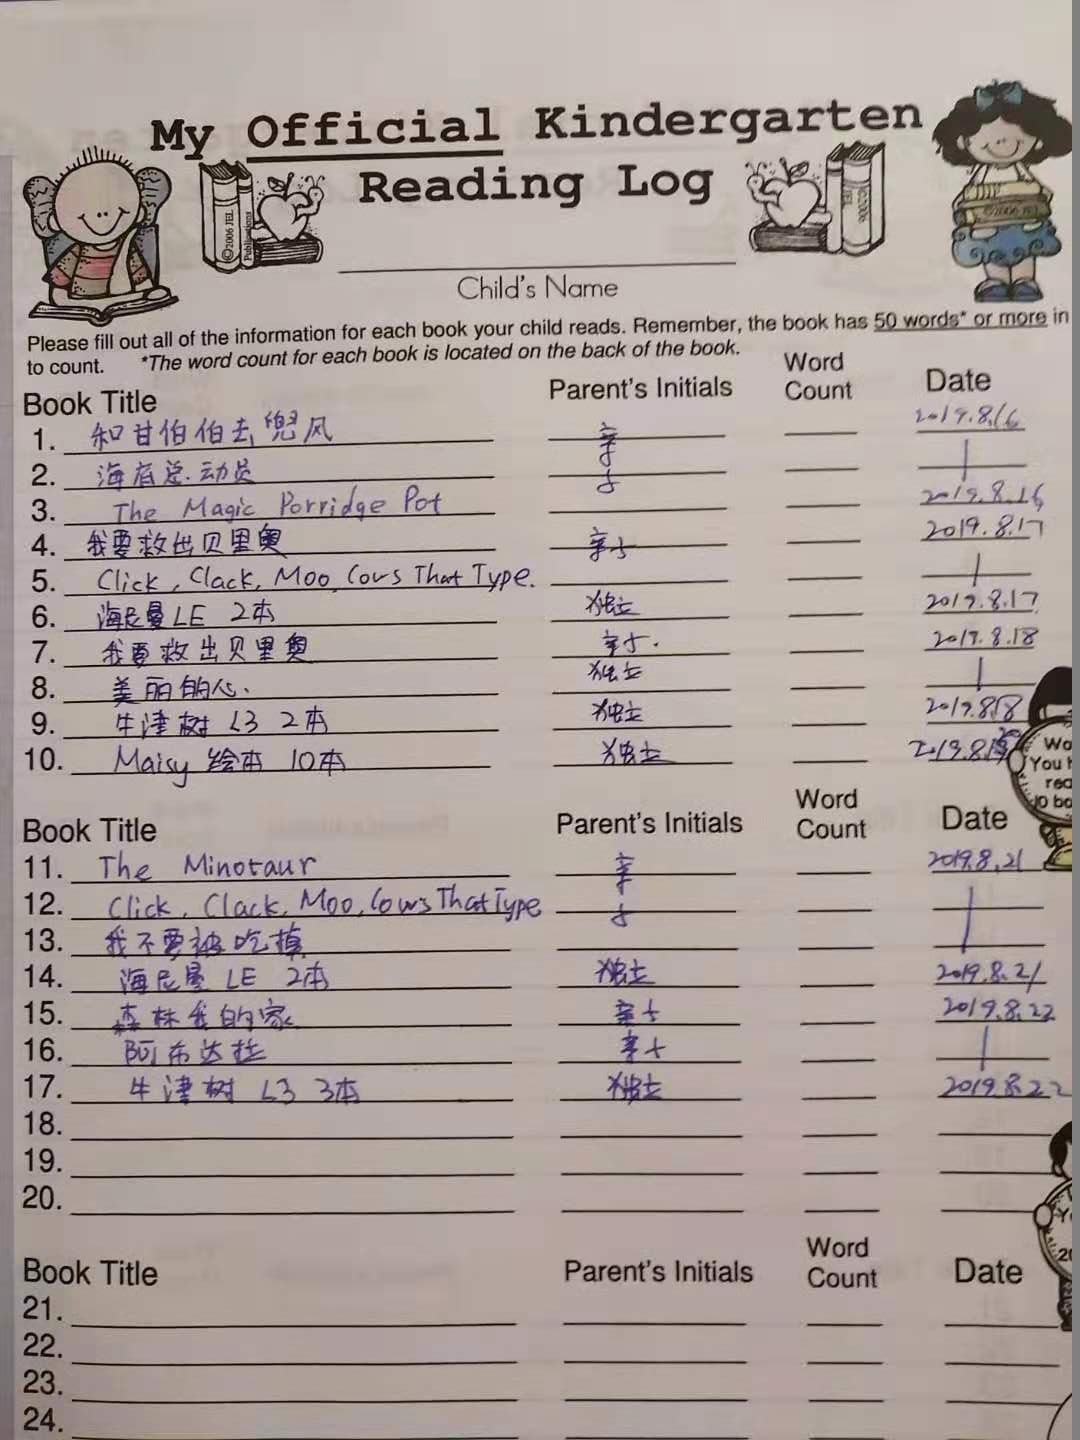 My Official Kindergarten
Reading Log
©2006 JEL
Publications
©2006
JEL
©2006 JEL
Child's Name
Please fill out all of the information for each book your child reads. Remember, the book has 50 words* or more in
to count. *The word count for each book is located on the back of the book.
Book Title Parent's Initials Word Count Date
1. 和甘伯伯去兜风 2019.8.16
2. 海底总动员
3. The Magic Porridge Pot 2019.8.16
4. 我要救出贝里奥 亲子 2019.8.17
5. Click, Clack, Moo, Cows That Type.
6. 海尼曼LE 2本 独立 2019.8.17
7. 我要救出贝里奥 亲子. 2019.8.18
8. 美丽的心. 独立
9. 牛津树 L3 2本 独立 2019.8.18
10. Maisy 绘本 10本 独立 2019.8.
Wo
You h
rea
10 bo
Book Title Parent's Initials Word Count Date
11. The Minotaur 亲 2019.8.21
12. Click, Clack, Moo, Cows That Type 子
13. 我不要被吃掉
14. 海尼曼 LE 2本 独立 2019.8.21
15. 森林我的家 亲子 2019.8.22
16. 阿布达拉 亲子
17. 牛津树 L3 3本 独立 2019.8.22
18.
19.
20.
Book Title Parent's Initials Word Count Date
21.
22.
23.
24.